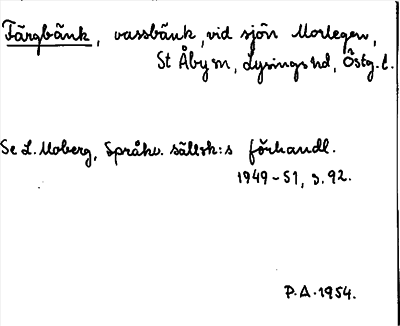 Färgbänk, vassbänk, vid sjön Morlegen,
St Åby sn, Lysings hd, Östg. l.
Se L. Moberg, Språkv. sällsk:s förhandl.
1949-51, s. 92.
P.A. 1954.